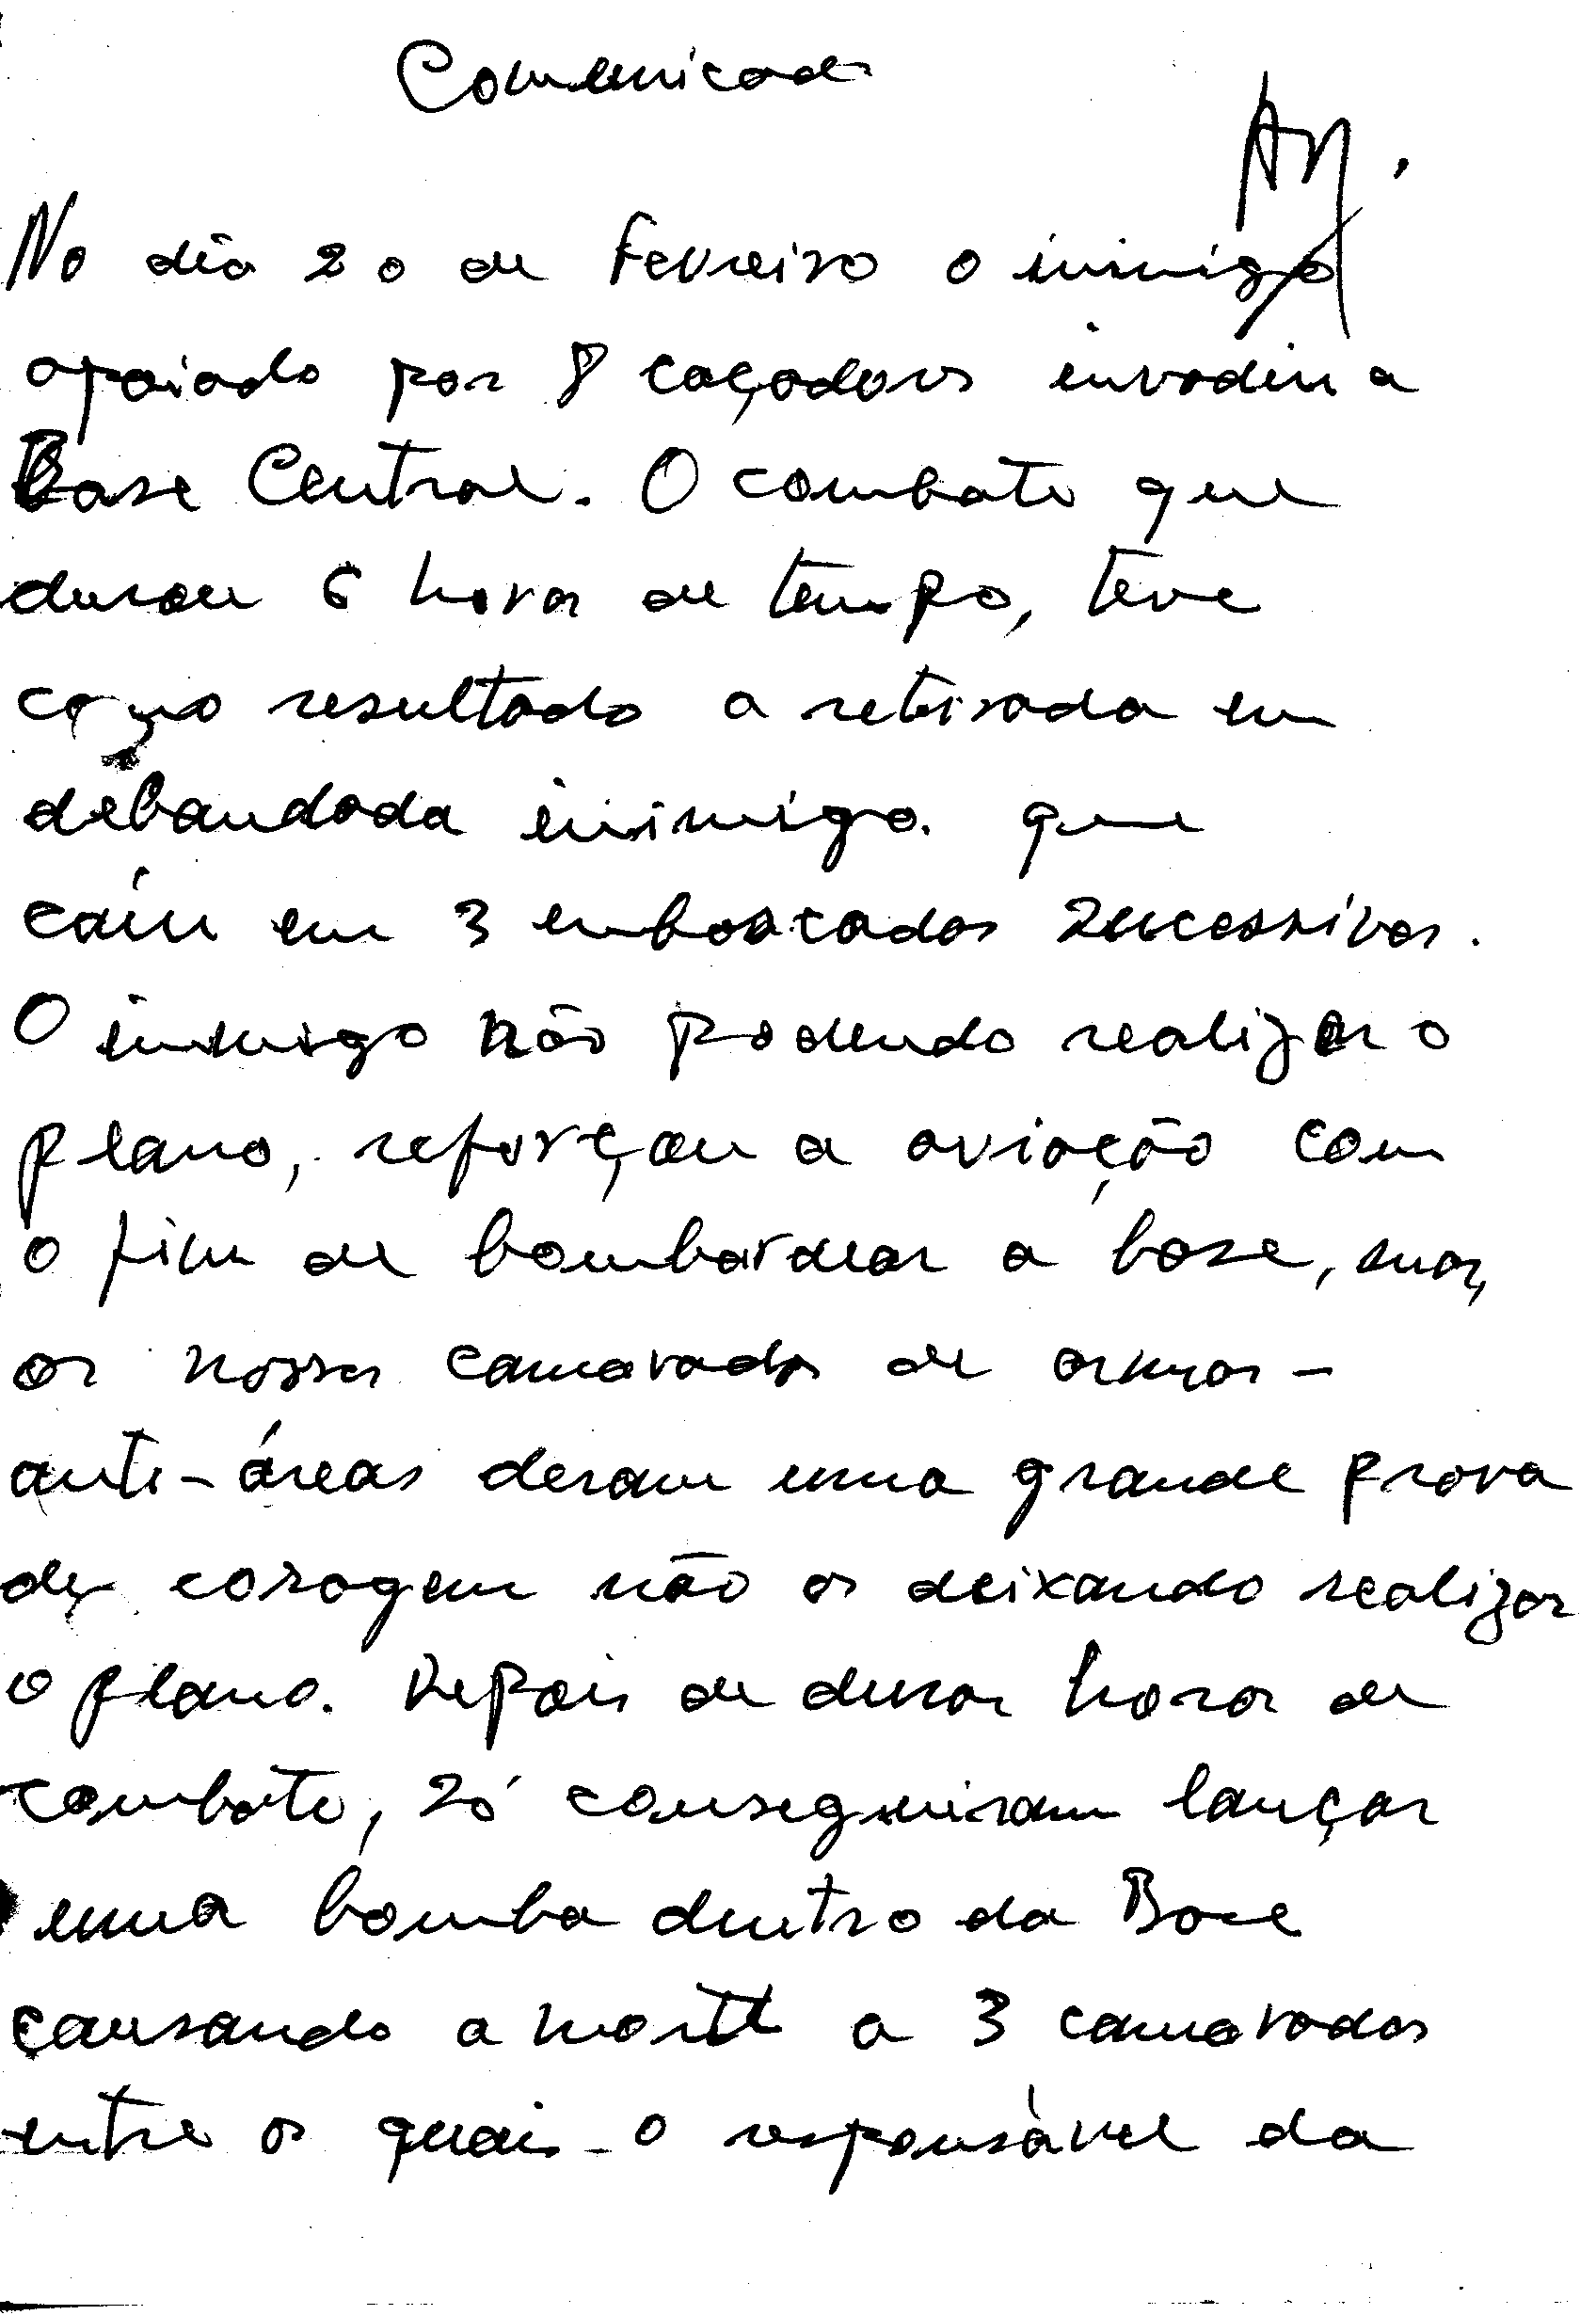 Comunicado
No dia 20 de Fevreiro o inimigo
apoiado por 8 caçadores invadiu a
Base Central. O combate que
durou 6 horas de tempo, teve
como resultado a retirada em
debandada inimigo. que
caíu em 3 emboscadas sucessivas.
O inimigo não podendo realizar o
plano, reforçou a aviação com
o fim de bombardear a base, mas,
os nossos camaradas de armas -
anti-áreas deram uma grande prova
de coragem não os deixando realizar
o plano. Depois de duras horas de
combate, só conseguiram lançar
uma bomba dentro da Base
causando a morte a 3 camaradas
entre os quais o responsável da